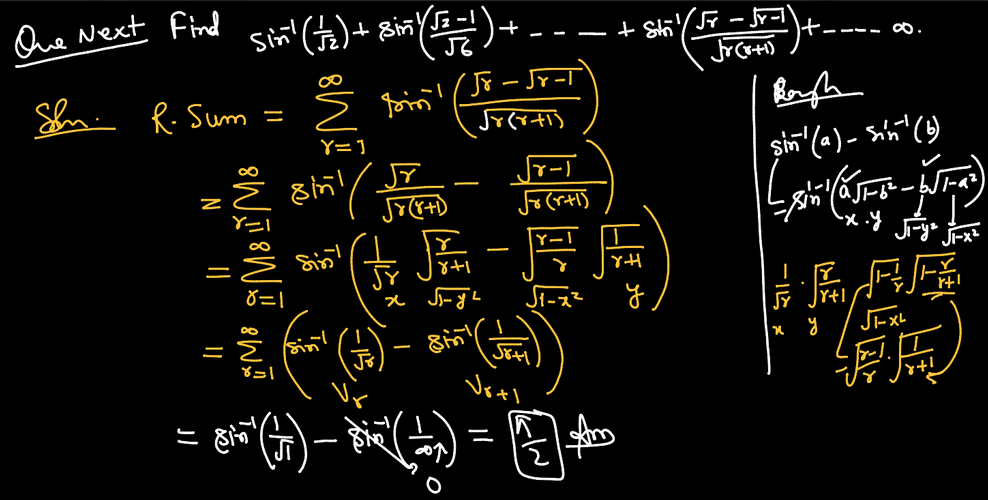 One Next Find sin⁻¹(1/√2) + sin⁻¹((√2 - 1)/√6) + - - - - + sin⁻¹((√r - √r-1)/√r(r+1)) + - - - - ∞.
Soln. R. Sum = ∞∑r=1 sin⁻¹((√r - √r-1)/√r(r+1))
= ∞∑r=1 sin⁻¹(√r/√r(r+1) - √r-1/√r(r+1))
= ∞∑r=1 sin⁻¹(1/√r √r/r+1 - √r-1/r √1/r+1)
x √1-y² √1-x² y
= ∞∑r=1 (sin⁻¹(1/√r) - sin⁻¹(1/√r+1))
Vr Vr+1
= sin⁻¹(1/√1) - sin⁻¹(1/∞↑) = π/2 Ans
0
Rough
sin⁻¹(a) - sin⁻¹(b)
= sin⁻¹(a√1-b² - b√1-a²)
x . y √1-y² √1-x²
1/√r . √r/r+1 √1-1/r √1-r/r+1
x y √1-x²
= √r-1/r . √1/r+1